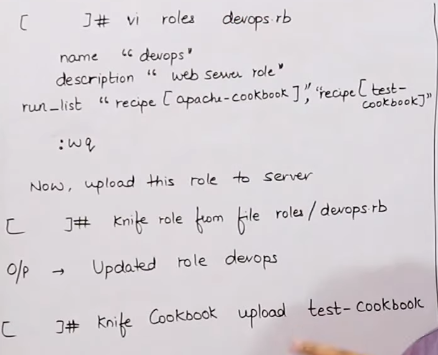 [ ]# vi roles devops.rb
name "devops"
description "web server role"
run_list "recipe[apache-cookbook]","recipe[test-
cookbook]"
:wq
Now, upload this role to server
[ ]# Knife role from file roles/devops.rb
O/p → Updated role devops
[ ]# Knife Cookbook upload test-cookbook